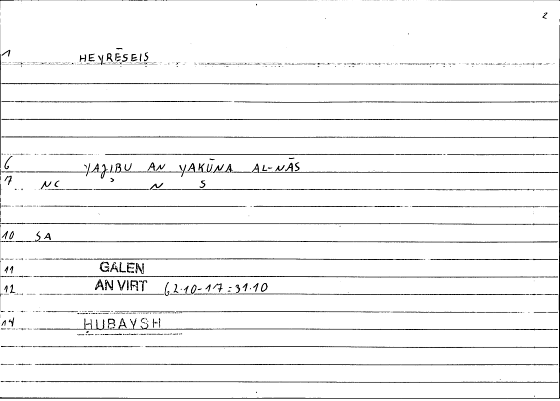 2
1 HEYRĒSEIS
6 YAJIBU AN YAKŪNA AL-NĀS
7 NC N S
10 SA
11 GALEN
12 AN VIRT 62.10-17 = 31.10
14 ḤUBAYSH